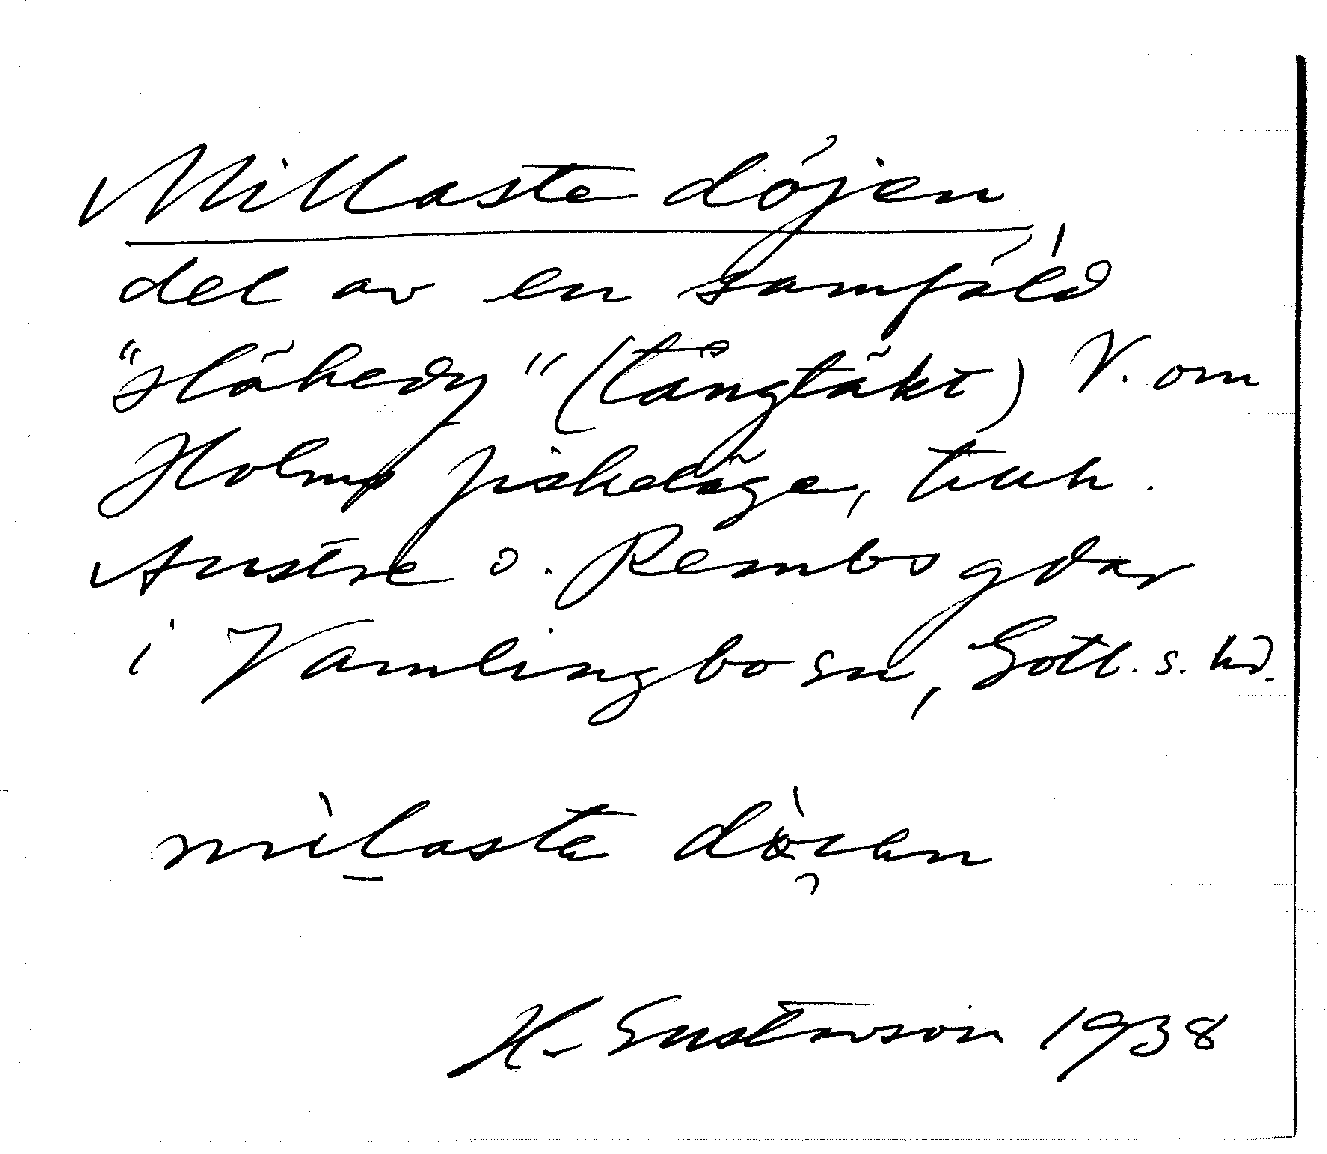 Millaste döjen
del av en samfäld
"släkedy" (tångtäkt) V. om
Holms fiskeläge, tillh.
Austre o. Rembs gdar
i Vamlingbo sn, Gotl. s. hd.
milaste
H. Gustavson 1938